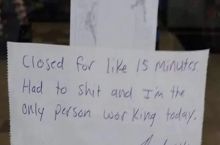 Closed for like 15 minutes
Had to shit and I'm the
only person working today.